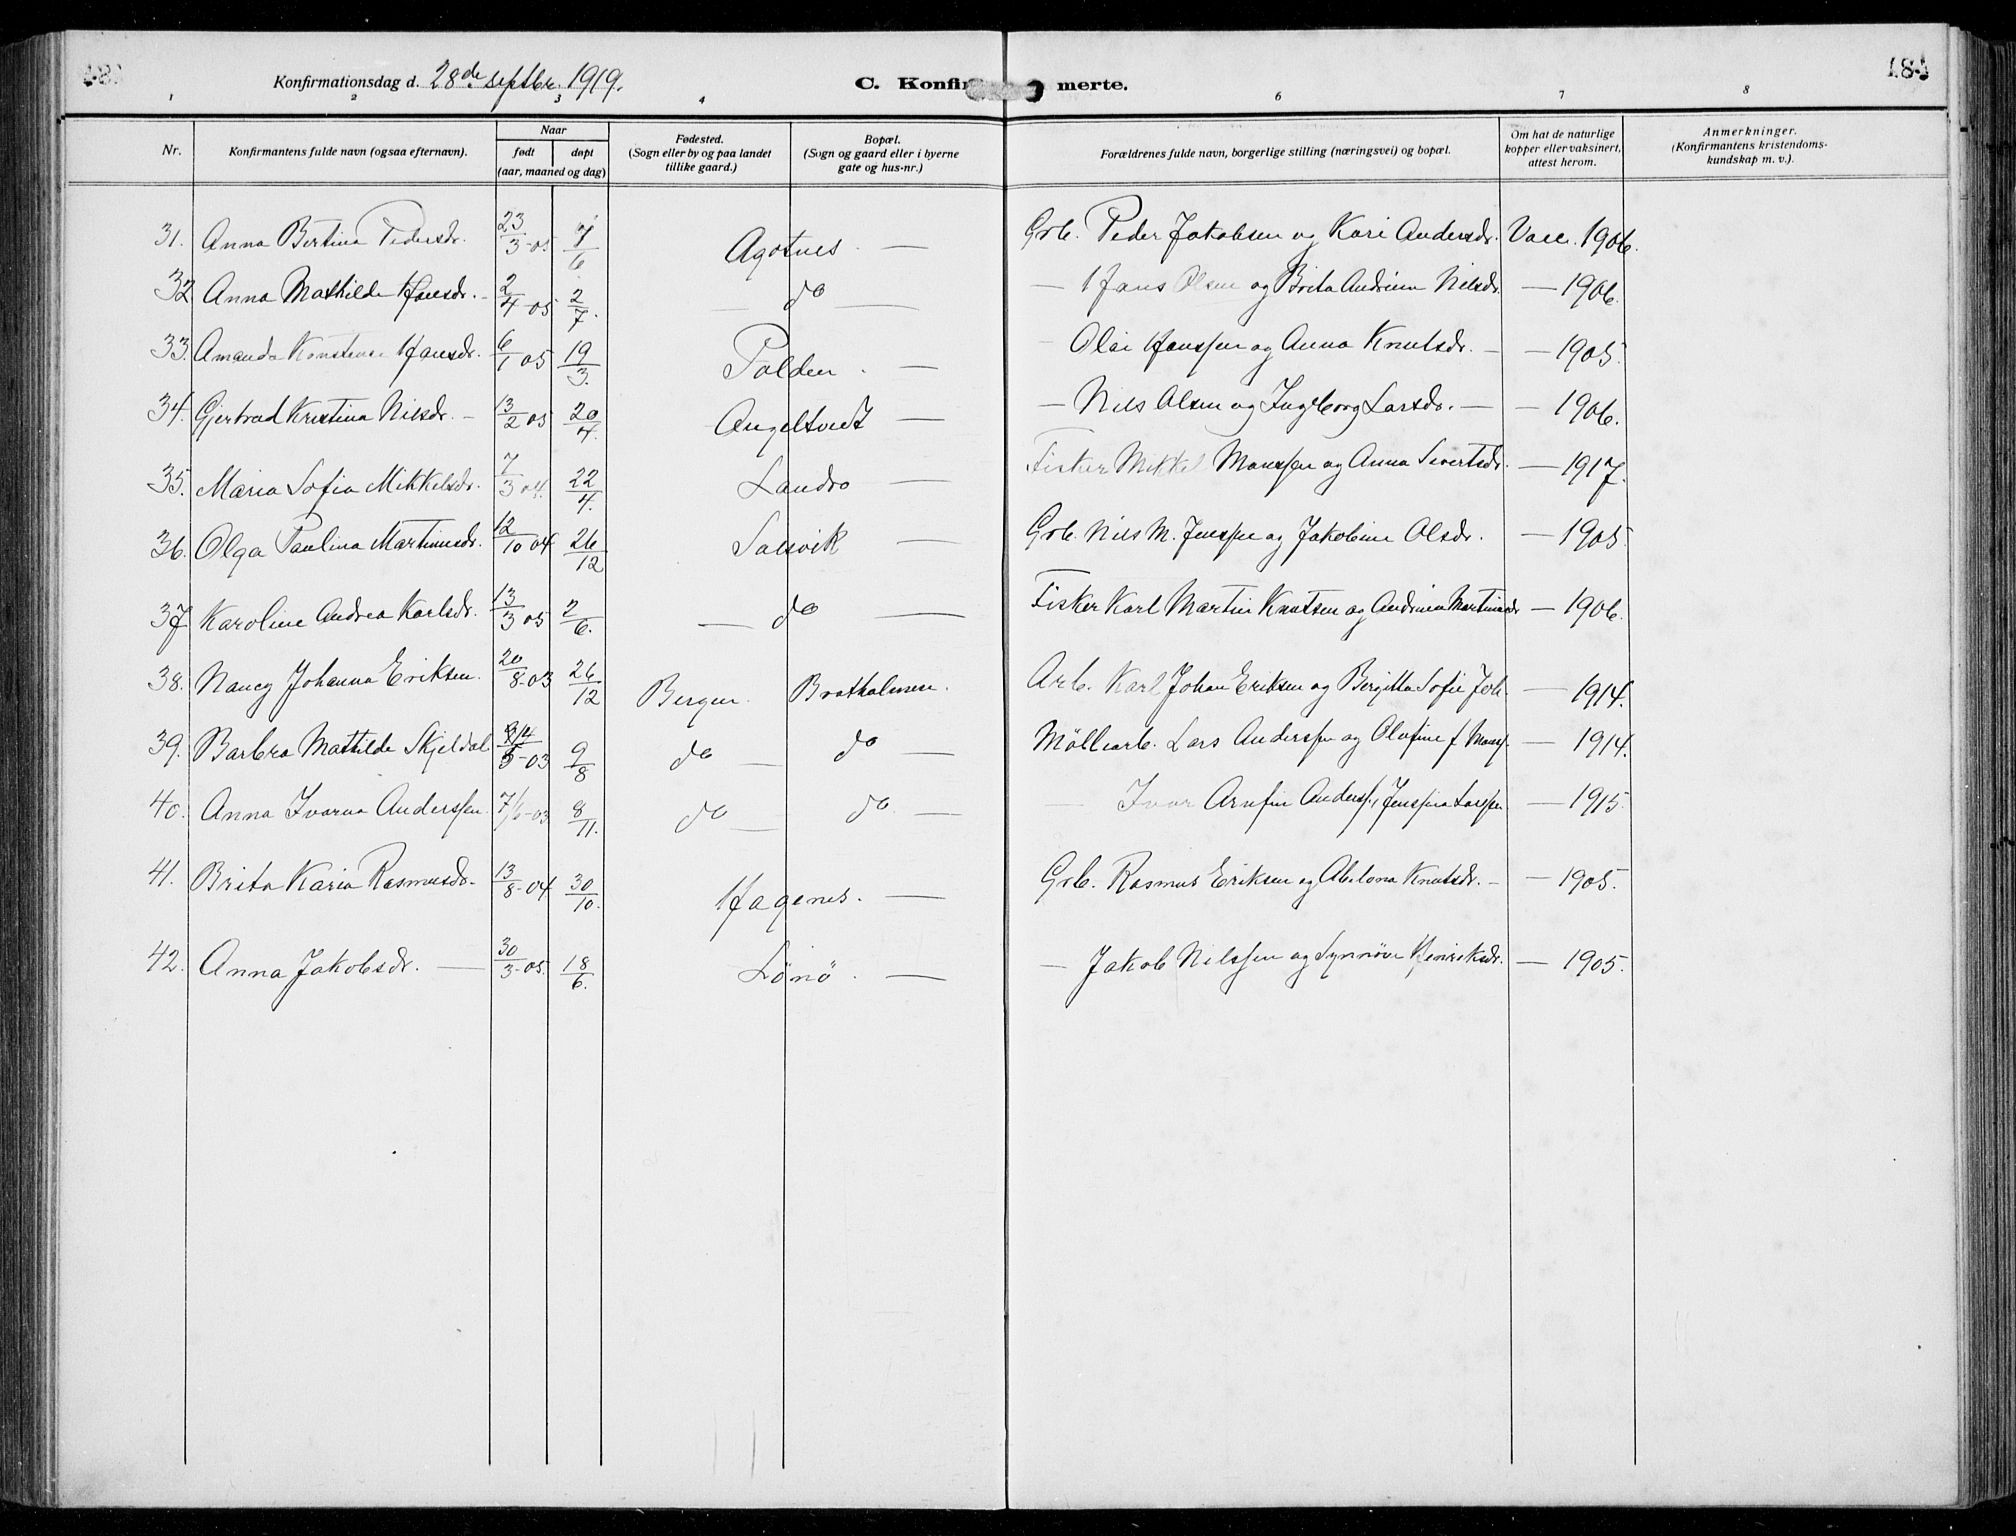 184
Konfirmationsdag d. 28de septbr. 1919.
C. Konfir merte.
184
1 2 3 4 6 7 8
Nr.
Konfirmantens fulde navn (ogsaa efternavn).
Naar
født døpt
(aar, maaned og dag)
Fødested.
(Sogn eller by og paa landet
tillike gaard.)
Bopæl.
(Sogn og gaard eller i byerne
gate og hus-nr.)
Forældrenes fulde navn, borgerlige stilling (næringsvei) og bopæl.
Om hat de naturlige
kopper eller vaksinert,
attest herom.
Anmerkninger.
(Konfirmantens kristendoms-
kundskap m. v.).
31. Anna Bertina Pedersdr. 23/3-05 7/6 Agotnes — Grb. Peder Jakobsen og Kari Andersdr. Vacc. 1906.
32 Anna Mathilde Hansdr. - 2/4-05 2/7. — do — — Hans Olsen og Brita Andrina Nilsdr. — 1906.
33. Amanda Konstanse Hansdr. 6/1 05 19/3. Polden . — - Olai Hanssen og Anna Knutsdr. — — 1905.
34. Gjertrud Kristina Nilsdr. - 13/2 05 20/4. Angeltvedt — — Nils Olsen og Ingeborg Larsdr. — — 1906.
35. Maria Sofia Mikkelsdr. 7/3 04. 22/4. Landro — Fisker Mikkel Monssen og Anna Sivertsdr. — 1917.
36. Olga Paulina Martinusdr. 12/10 04 26/12 Solsvik — Grb. Nils M. Jenssen og Jakobine Olsdr. — 1905.
37 Karoline Andrea Karlsdr. 13/3 05 2/6. — do — Fisker Karl Martin Knutsen og Andrina Martinusdr — 1906.
38. Nancy Johanna Eriksen. 20/8-03 26/12 Bergen. Bratholmen. Arb. Karl Johan Eriksen og Bergitta Sofie Joh. — 1914.
39. Barbra Mathilde Skjeldal 5-03 9/8 do — do — Møllearb. Lars Anderssen og Olufine f. — 1914.
40. Anna Ivarna Anderssen. 7/6-03 8/11. do — do. — — Ivar Arnfin Anderss., Jenssina Larssen — 1915.
41. Brita Karia Rasmusdr. 13/8-04 30/10. Hagenes. — Grb. Rasmus Eriksen og Abelona Knutsdr. — — 1905.
42. Anna Jakobsdr. — 30/3-05. 18/6. Lönö . — — Jakob Nilssen og Synnøve Henriksdr. — 1905.